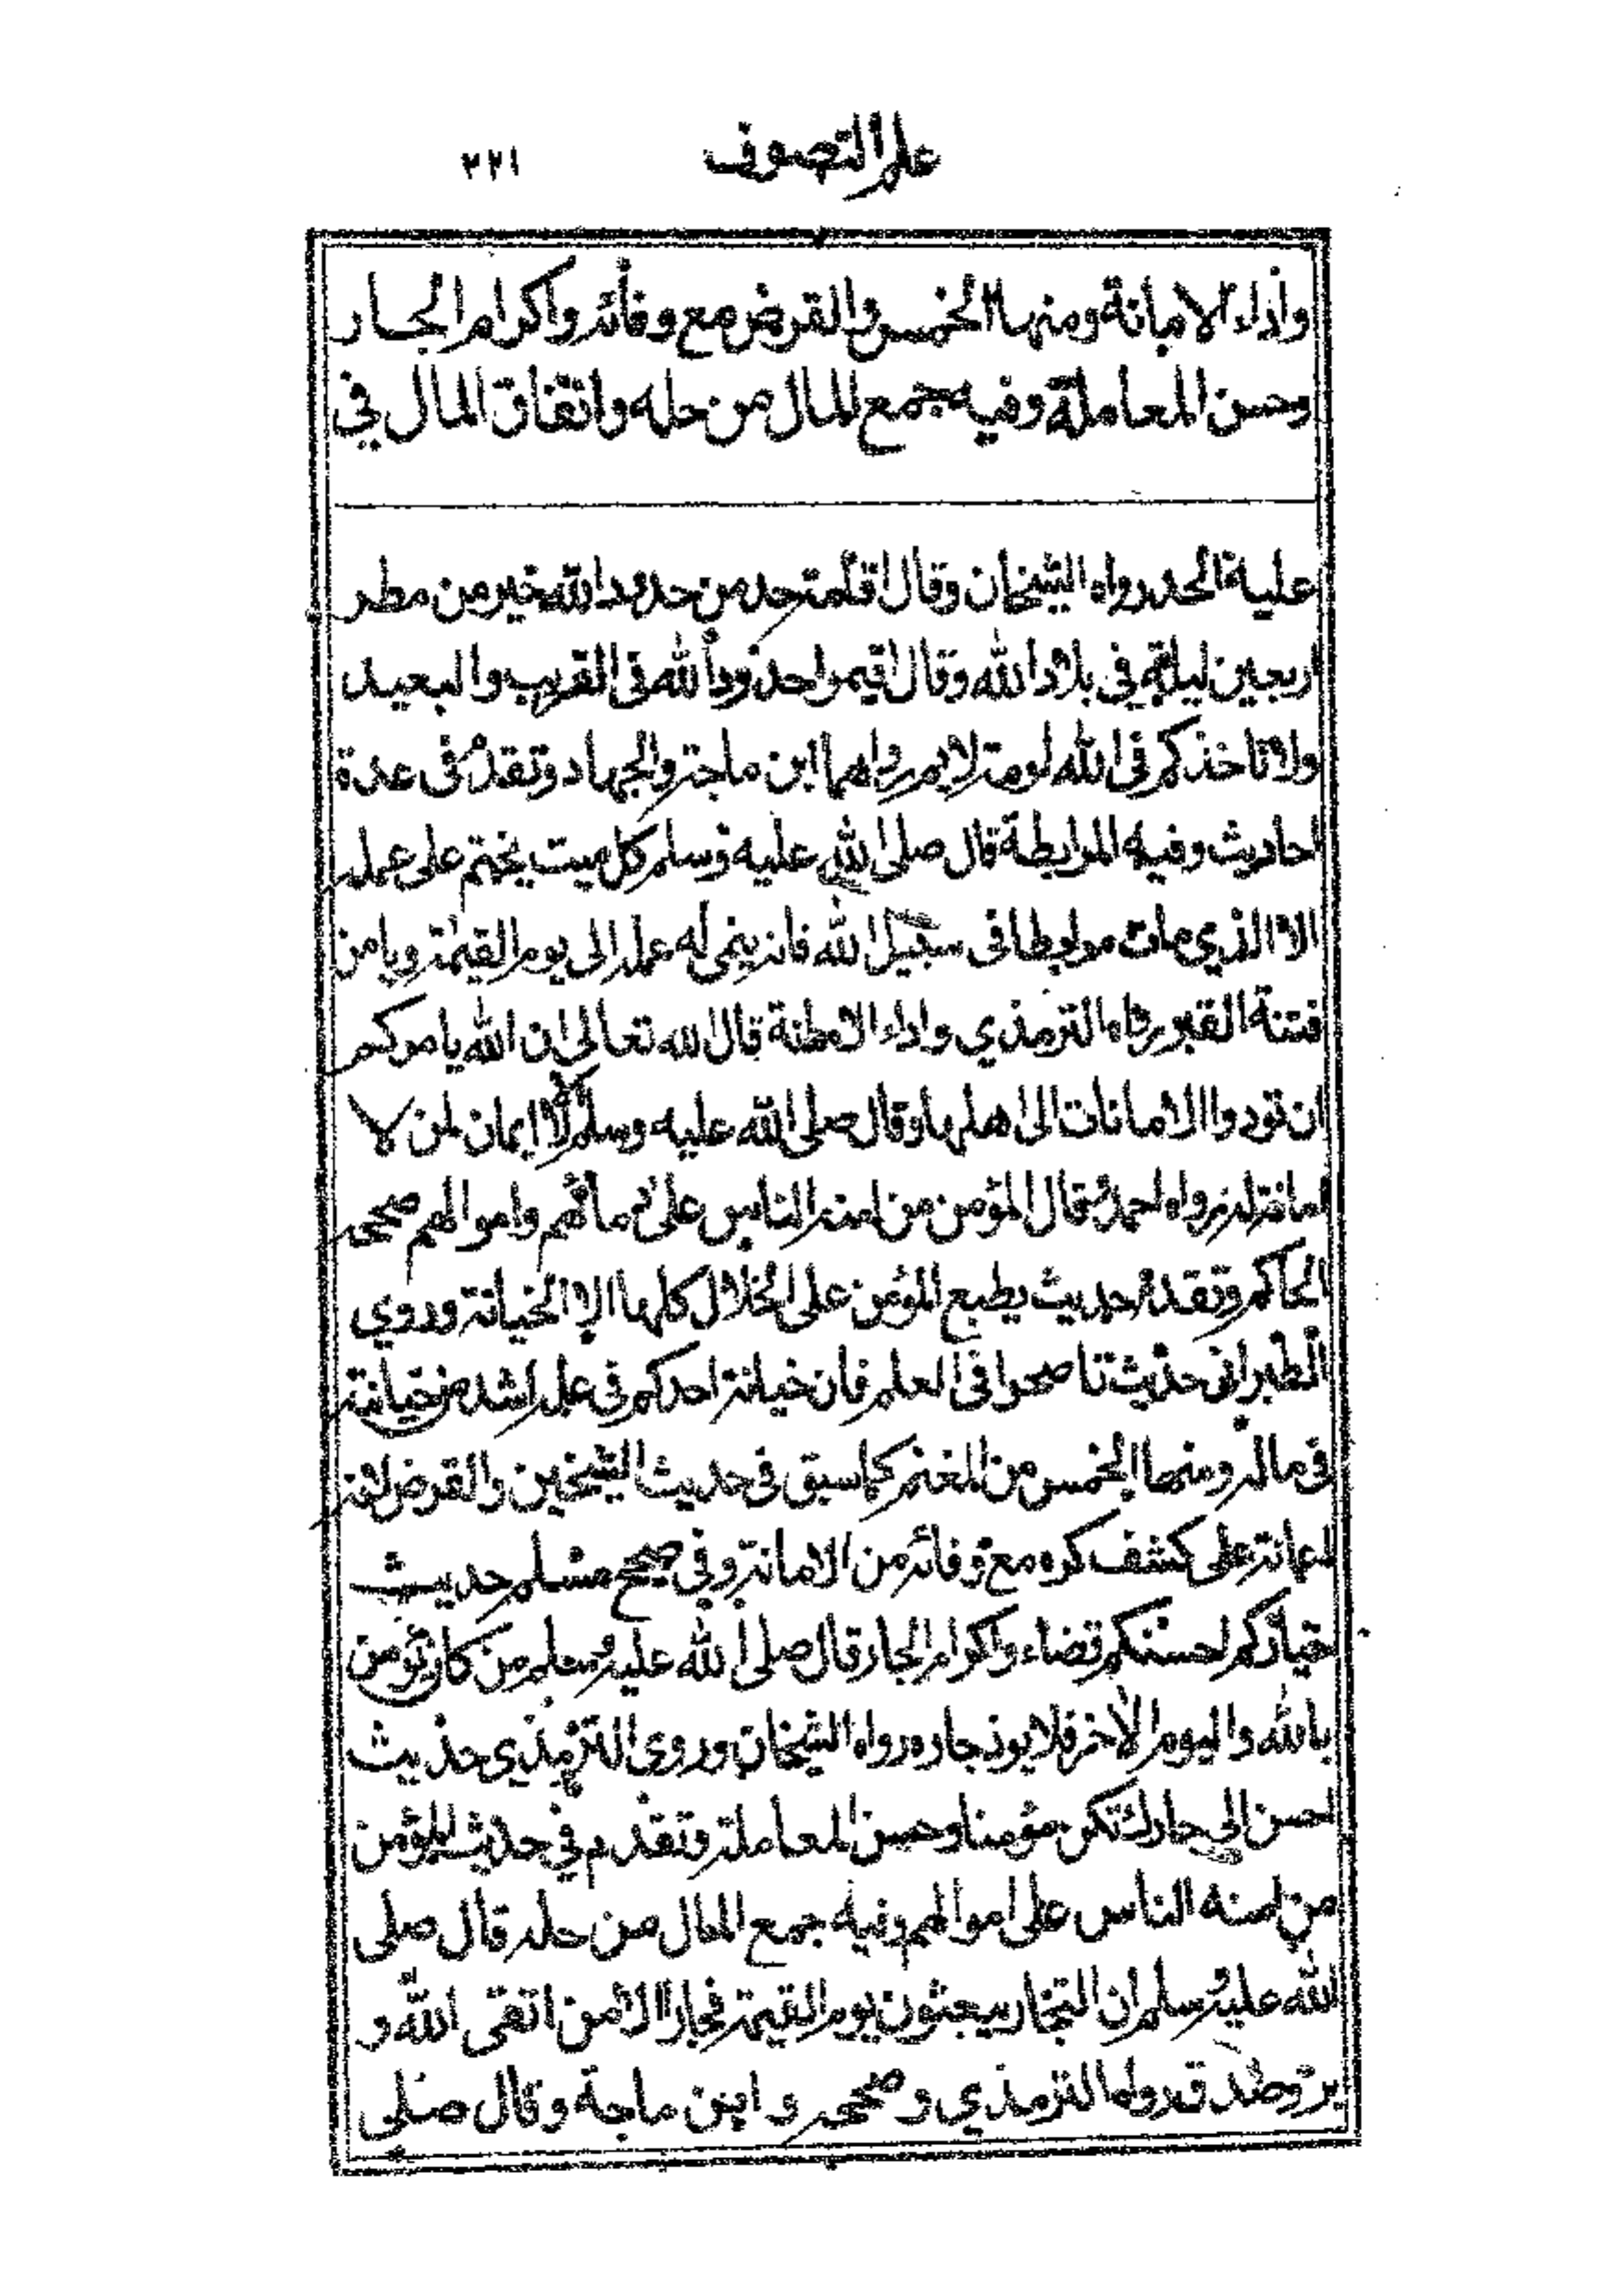 علم التصوف ٢٢١
وأداء الامانة ومنها الخمس والقرض مع وفائه واكرام الجار
وحسن المعاملة وفيه جمع المال من حله وانفاق المال في
عليه الحد رواه الشيخان وقال اقامة حد من حدود الله خير من مطر
اربعين ليلة في بلاد الله وقال اقيموا حدود الله في القريب والبعيد
ولا تاخذكم في الله لومة لايم رواهما ابن ماجة والجهاد وتقدم في عدة
احاديث وفيه المرابطة قال صلى الله عليه وسلم كل ميت يختم على عمله
الا الذي مات مرابطا في سبيل الله فانه ينمى له عمله الى يوم القيمة ويامن
فتنة القبور رواه الترمذي واداء الامانة قال الله تعالى ان الله يامركم
ان تودوا الامانات الى اهلها وقال صلى الله عليه وسلم لا ايمان لمن لا
امانة له رواه احمد وقال المؤمن من امنه الناس على دمائهم واموالهم صححه
الحاكم وتقدم حديث يطبع المؤمن على الخلال كلها الا الخيانة وروي
الطبراني حديث تناصحوا في العلم فان خيانة احدكم في علمه اشد من خيانته
في ماله ومنها الخمس من المغنم كما سبق في حديث الشيخين والقرض لانه
اعانة على كشف كربه مع وفائه من الامانة وفي صحيح مسلم حديث
خياركم احسنكم قضاء واكرام الجار قال صلى الله عليه وسلم من كان يؤمن
بالله واليوم الأخر فلا يوذ جاره رواه الشيخان وروى الترمذي حديث
احسن الى جارك تكن مؤمنا وحسن المعاملة وتقدم في حديث المؤمن
من امنه الناس على اموالهم وفيه جمع المال من حله قال صلى
الله عليه وسلم ان التجار يبعثون يوم القيمة فجارا الا من اتقى الله و
بر وصدق رواه الترمذي وصححه وابن ماجة وقال صلى